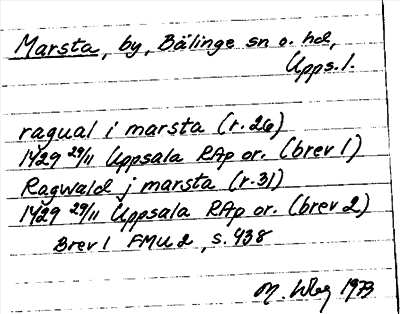 Marsta, by, Bälinge sn o. hd,
Upps. l.
ragual i marsta (r. 26)
1429 29/11 Uppsala RAp or. (brev 1)
Ragwald j marsta (r. 31)
1429 29/11 Uppsala RAp or. (brev 2)
Brev 1 FMU 2, s. 438
M. 1973